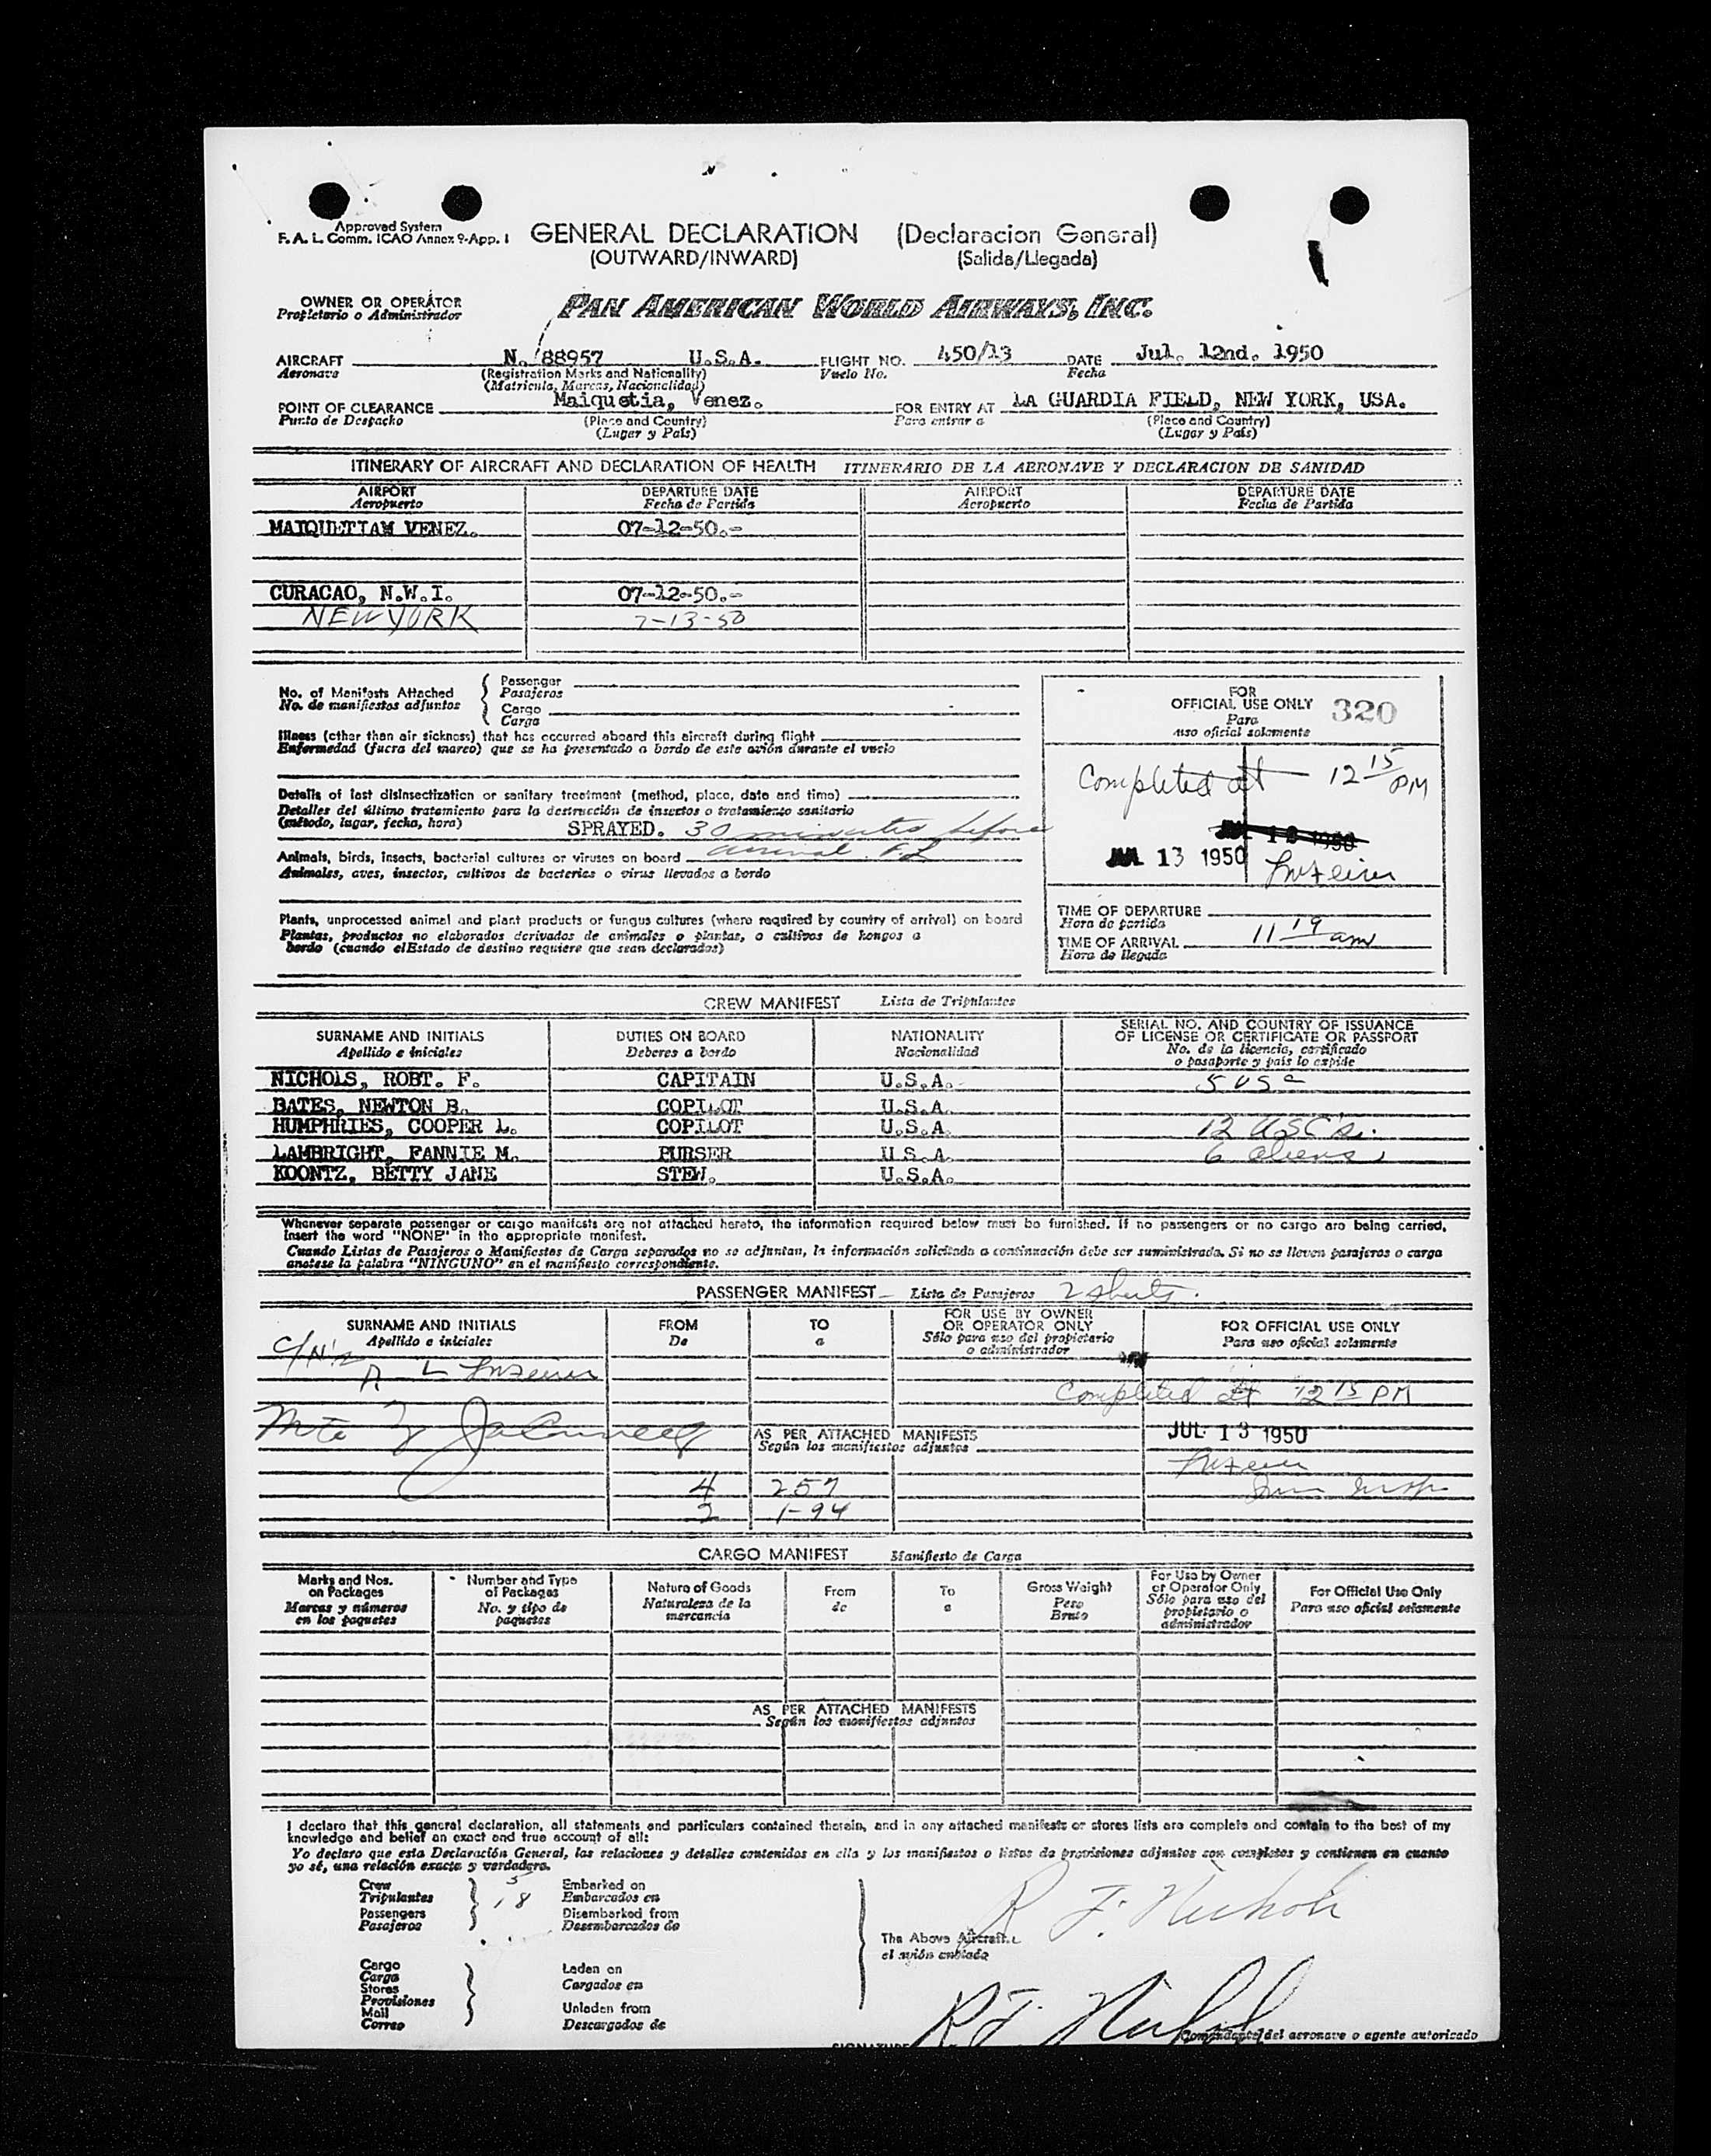 Approved System
F. A. L. Comm. ICAO Annex 9-App. 1
GENERAL DECLARATION (Declaracion General)
(OUTWARD/INWARD) (Salida/Llegada)
OWNER OR OPERATOR
Propietario o Administrador
PAN AMERICAN WORLD AIRWAYS, INC.
AIRCRAFT N. 88957 U.S.A. FLIGHT NO. 450/13 DATE Jul. 12nd. 1950
Aeronave (Registration Marks and Nationality) Vuelo No. Fecha
(Matricula, Marcas, Nacionalidad)
POINT OF CLEARANCE Maiquetia, Venez. FOR ENTRY AT LA GUARDIA FIELD, NEW YORK, USA.
Punto de Despacho (Place and Country) Para entrar a (Place and Country)
(Lugar y País) (Lugar y País)
ITINERARY OF AIRCRAFT AND DECLARATION OF HEALTH ITINERARIO DE LA AERONAVE Y DECLARACION DE SANIDAD
AIRPORT DEPARTURE DATE AIRPORT DEPARTURE DATE
Aeropuerto Fecha de Partida Aeropuerto Fecha de Partida
MAIQUETIAM VENEZ. 07-12-50.-
CURACAO, N.W.I. 07-12-50.-
NEW YORK 7-13-50
No. of Manifests Attached
No. de manifiestos adjuntos
Passenger
Pasajeros
Cargo
Carga
FOR
OFFICIAL USE ONLY 320
Para
uso oficial solamente
Illness (other than air sickness) that has occurred aboard this aircraft during flight
Enfermedad (fuera del mareo) que se ha presentado a bordo de este avión durante el vuelo
Completed at 12 15 PM
Details of last disinsectization or sanitary treatment (method, place, date and time)
Detalles del último tratamiento para la destrucción de insectos o tratamiento sanitario
(método, lugar, fecha, hora) SPRAYED. 30 minutes before
arrival
JUL 13 1950
Animals, birds, insects, bacterial cultures or viruses on board
Animales, aves, insectos, cultivos de bacterias o virus llevados a bordo
Plants, unprocessed animal and plant products or fungus cultures (where required by country of arrival) on board
Plantas, productos no elaborados derivados de animales o plantas, o cultivos de hongos a
bordo (cuando el Estado de destino requiere que sean declarados)
TIME OF DEPARTURE
Hora de partida
TIME OF ARRIVAL 11 19 am
Hora de llegada
CREW MANIFEST Lista de Tripulantes
SURNAME AND INITIALS DUTIES ON BOARD NATIONALITY SERIAL NO. AND COUNTRY OF ISSUANCE
OF LICENSE OR CERTIFICATE OR PASSPORT
Apellido e iniciales Deberes a bordo Nacionalidad No. de la licencia, certificado
o pasaporte y país lo expide
NICHOLS, ROBT. F. CAPITAIN U.S.A. 5 USC
BATES, NEWTON B. COPILOT U.S.A.
HUMPHRIES, COOPER L. COPILOT U.S.A. 12 USC's.
LAMBRIGHT, FANNIE M. PURSER U.S.A. 6 aliens
KOONTZ, BETTY JANE STEW. U.S.A.
Whenever separate passenger or cargo manifests are not attached hereto, the information required below must be furnished. If no passengers or no cargo are being carried,
insert the word "NONE" in the appropriate manifest.
Cuando Listas de Pasajeros o Manifiestos de Carga separados no se adjuntan, la información solicitada a continuación debe ser suministrada. Si no se lleven pasajeros o carga
anotese la palabra "NINGUNO" en el manifiesto correspondiente.
PASSENGER MANIFEST Lista de Pasajeros 2 sheets.
SURNAME AND INITIALS FROM TO FOR USE BY OWNER
OR OPERATOR ONLY FOR OFFICIAL USE ONLY
Apellido e iniciales De a Sólo para uso del propietario
o administrador Para uso oficial solamente
Completed at 12 15 PM
AS PER ATTACHED MANIFESTS
Según los manifiestos adjuntos
JUL 13 1950
4 257
2 1-94
CARGO MANIFEST Manifiesto de Carga
Marks and Nos.
on Packages
Marcas y números
en los paquetes
Number and Type
of Packages
No. y tipo de
paquetes
Nature of Goods
Naturaleza de la
mercancia
From
de
To
a
Gross Weight
Peso
Bruto
For Use by Owner
or Operator Only
Sólo para uso del
propietario o
administrador
For Official Use Only
Para uso oficial solamente
AS PER ATTACHED MANIFESTS
Según los manifiestos adjuntos
I declare that this general declaration, all statements and particulars contained therein, and in any attached manifests or stores lists are complete and contain to the best of my
knowledge and belief an exact and true account of all:
Yo declaro que esta Declaración General, las relaciones y detalles contenidos en ella y los manifiestos o listas de provisiones adjuntos son completos y contienen en cuanto
yo sé, una relación exacta y verdadera.
Crew 5 Embarked on
Tripulantes Embarcados en
Passengers 18 Disembarked from
Pasajeros Desembarcados de
R F. Nichols
The Above Aircraft.
el avión
Cargo
Carga
Stores
Provisiones
Mail
Correo
Laden on
Cargados en
Unladen from
Descargados de
R F. Nichols
Comandante del aeronave o agente autorizado
SIGNATURE